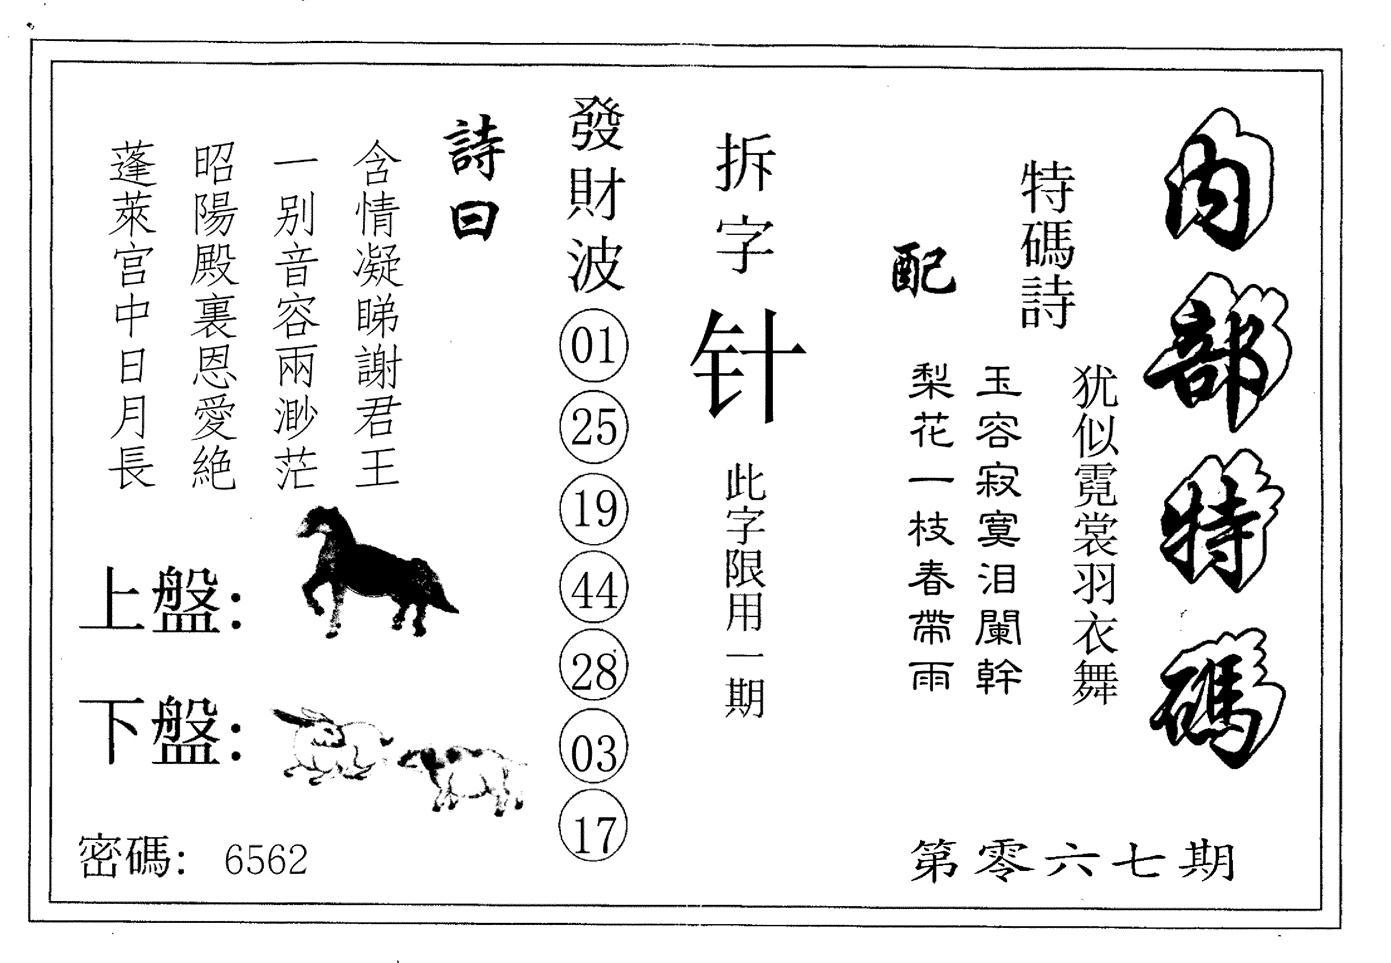 內部特碼
第零六七期
特碼詩
犹似霓裳羽衣舞
配
玉容寂寞泪闌幹
梨花一枝春帶雨
拆字
针
此字限用一期
發財波
01
25
19
44
28
03
17
詩曰
含情凝睇謝君王
一别音容兩渺茫
昭陽殿裏恩愛絕
蓬萊宫中日月長
上盤：
下盤：
密碼：6562